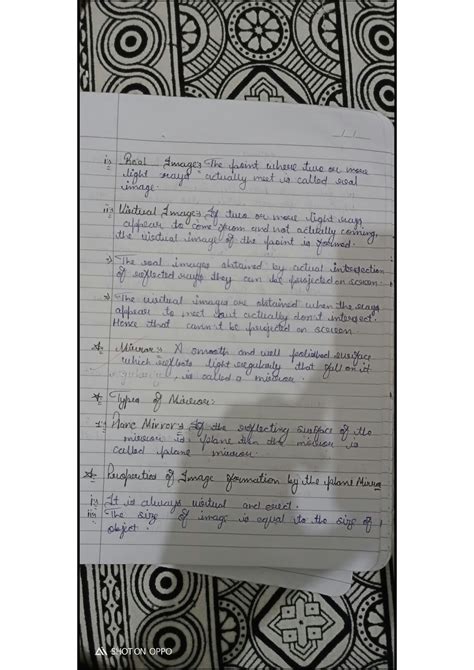 i) Real Image:- The point where two or more
light rays actually meet is called real
image.
ii) Virtual Image:- If two or more light rays
appear to come from and not actually coming,
the virtual image of the point is formed.
→ The real images obtained by actual intersection
of reflected rays they can be projected on screen.
→ The virtual images are obtained when the rays
appear to meet but actually don't intersect.
Hence that cann't be projected on screen
* Mirror:- A smooth and well polished surface
which reflects light regularly that fall on it
, is called a mirror.
* Types of Mirror:
1) Plane Mirror:- If the reflecting surface of the
mirror is plane then the mirror is
called plane mirror.
* Properties of Image formation by the plane Mirror
i) It is always virtual and erect.
ii) The size of image is equal to the size of
object.
SHOT ON OPPO